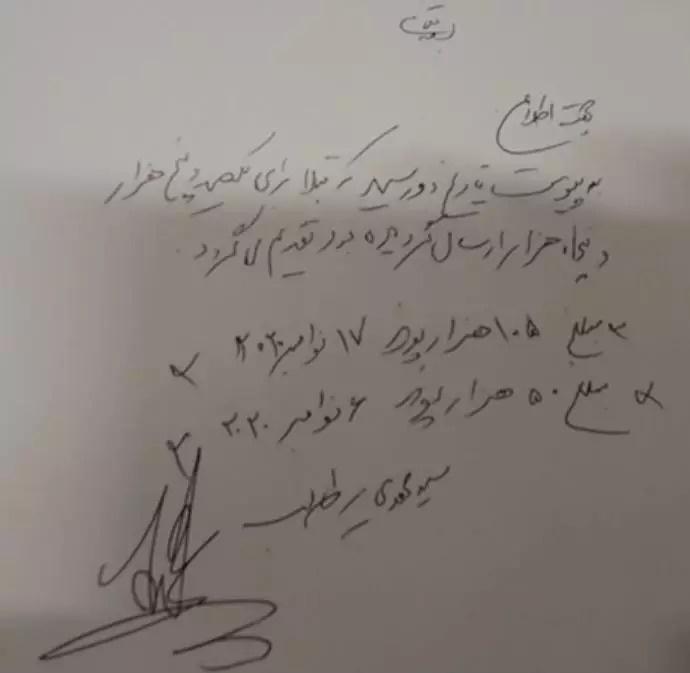 بسمه تعالی
جهت اطلاع
به پیوست تاریخ دو رسید که قبلا برای یکصد و پنج هزار
و پنجاه هزار ارسال گردیده بود تقدیم می گردد.
مبلغ ۱۰۵ هزار پوند ۱۷ نوامبر ۲۰۲۰
مبلغ ۵۰ هزار پوند ۶ نوامبر ۲۰۲۰
سید مهدی